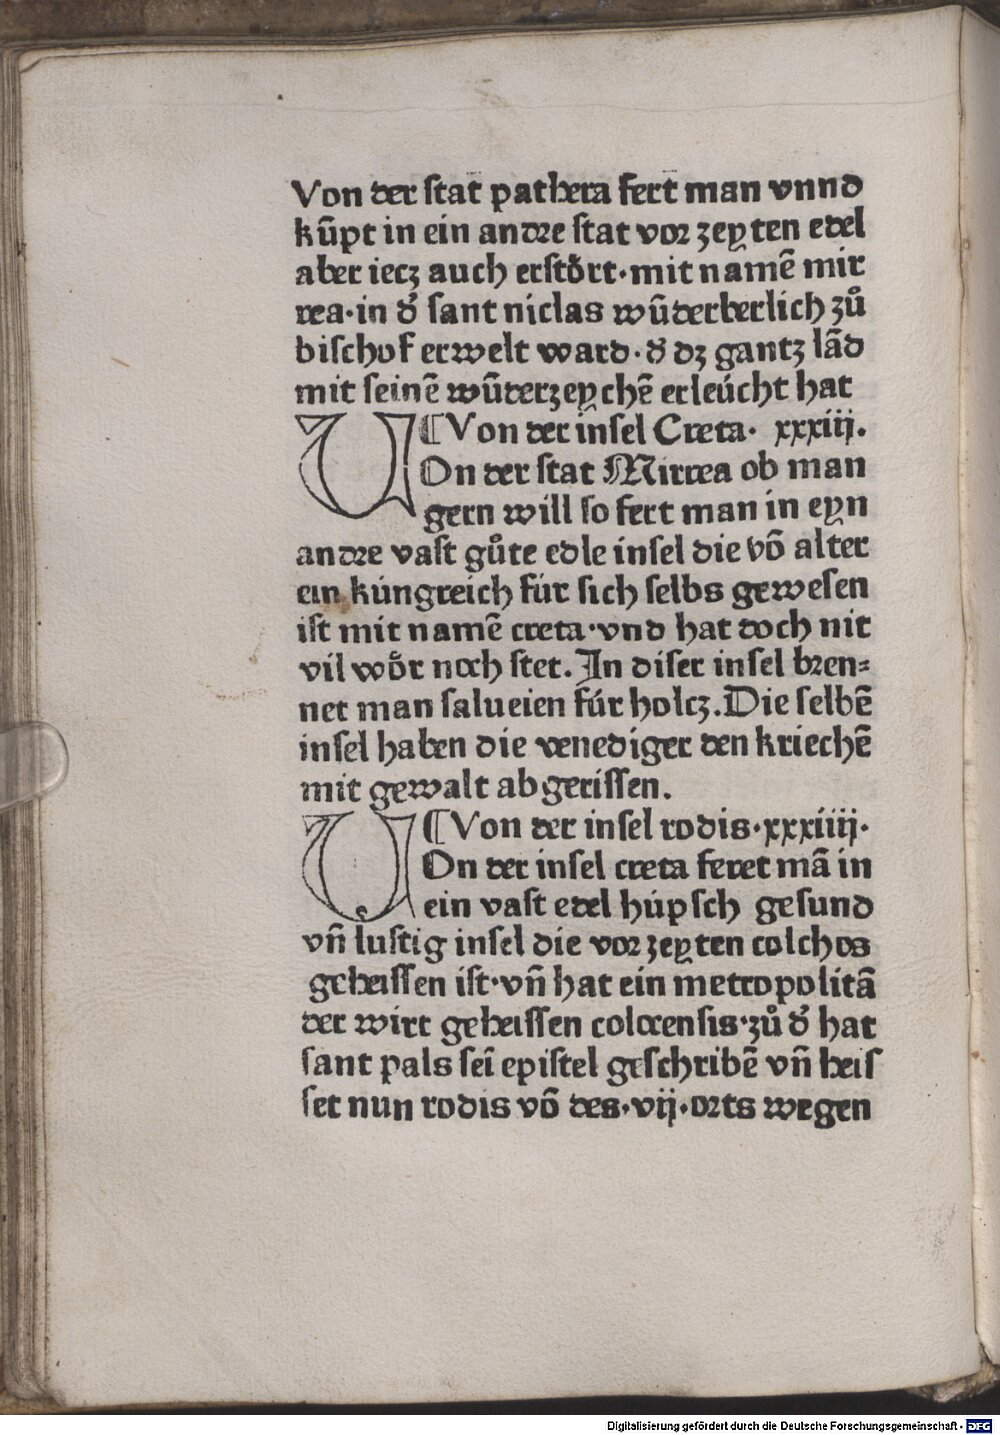 Von der stat pathera fert man vnnd
kūpt in ein andre stat vor zeyten edel
aber iecz auch erstoͤrt·mit namē mir
rea·in dʼ sant niclas wūderberlich zuͦ
bischof erwelt ward·dʼ dz gantz lād
mit seinē wūderzeychē erleúcht hat
¶Von der insel Creta· xxxiij.
VOn der stat Mirrea ob man
gern will so fert man in eyn
andre vast guͦte edle insel die vō alter
ein kúngreich fúr sich selbs gewesen
ist mit namē creta·vnd hat doch nit
vil woͤr noch stet. In diser insel bren⸗
net man salueien fúr holcz. Die selbē
insel haben die venediger den kriechē
mit gewalt ab gerissen.
¶Von der insel rodis·xxxiiij·
VOn der insel creta feret mā in
ein vast edel húpsch gesund
vn̄ lustig insel die vor zeyten colchos
geheissen ist·vn̄ hat ein metropolitā
der wirt geheissen colocensis·zuͦ dʼ hat
sant pals sei̅ epistel geschribē vn̄ heis
set nun rodis vō des·vij·orts wegen
Digitalisierung gefördert durch die Deutsche Forschungsgemeinschaft - DFG